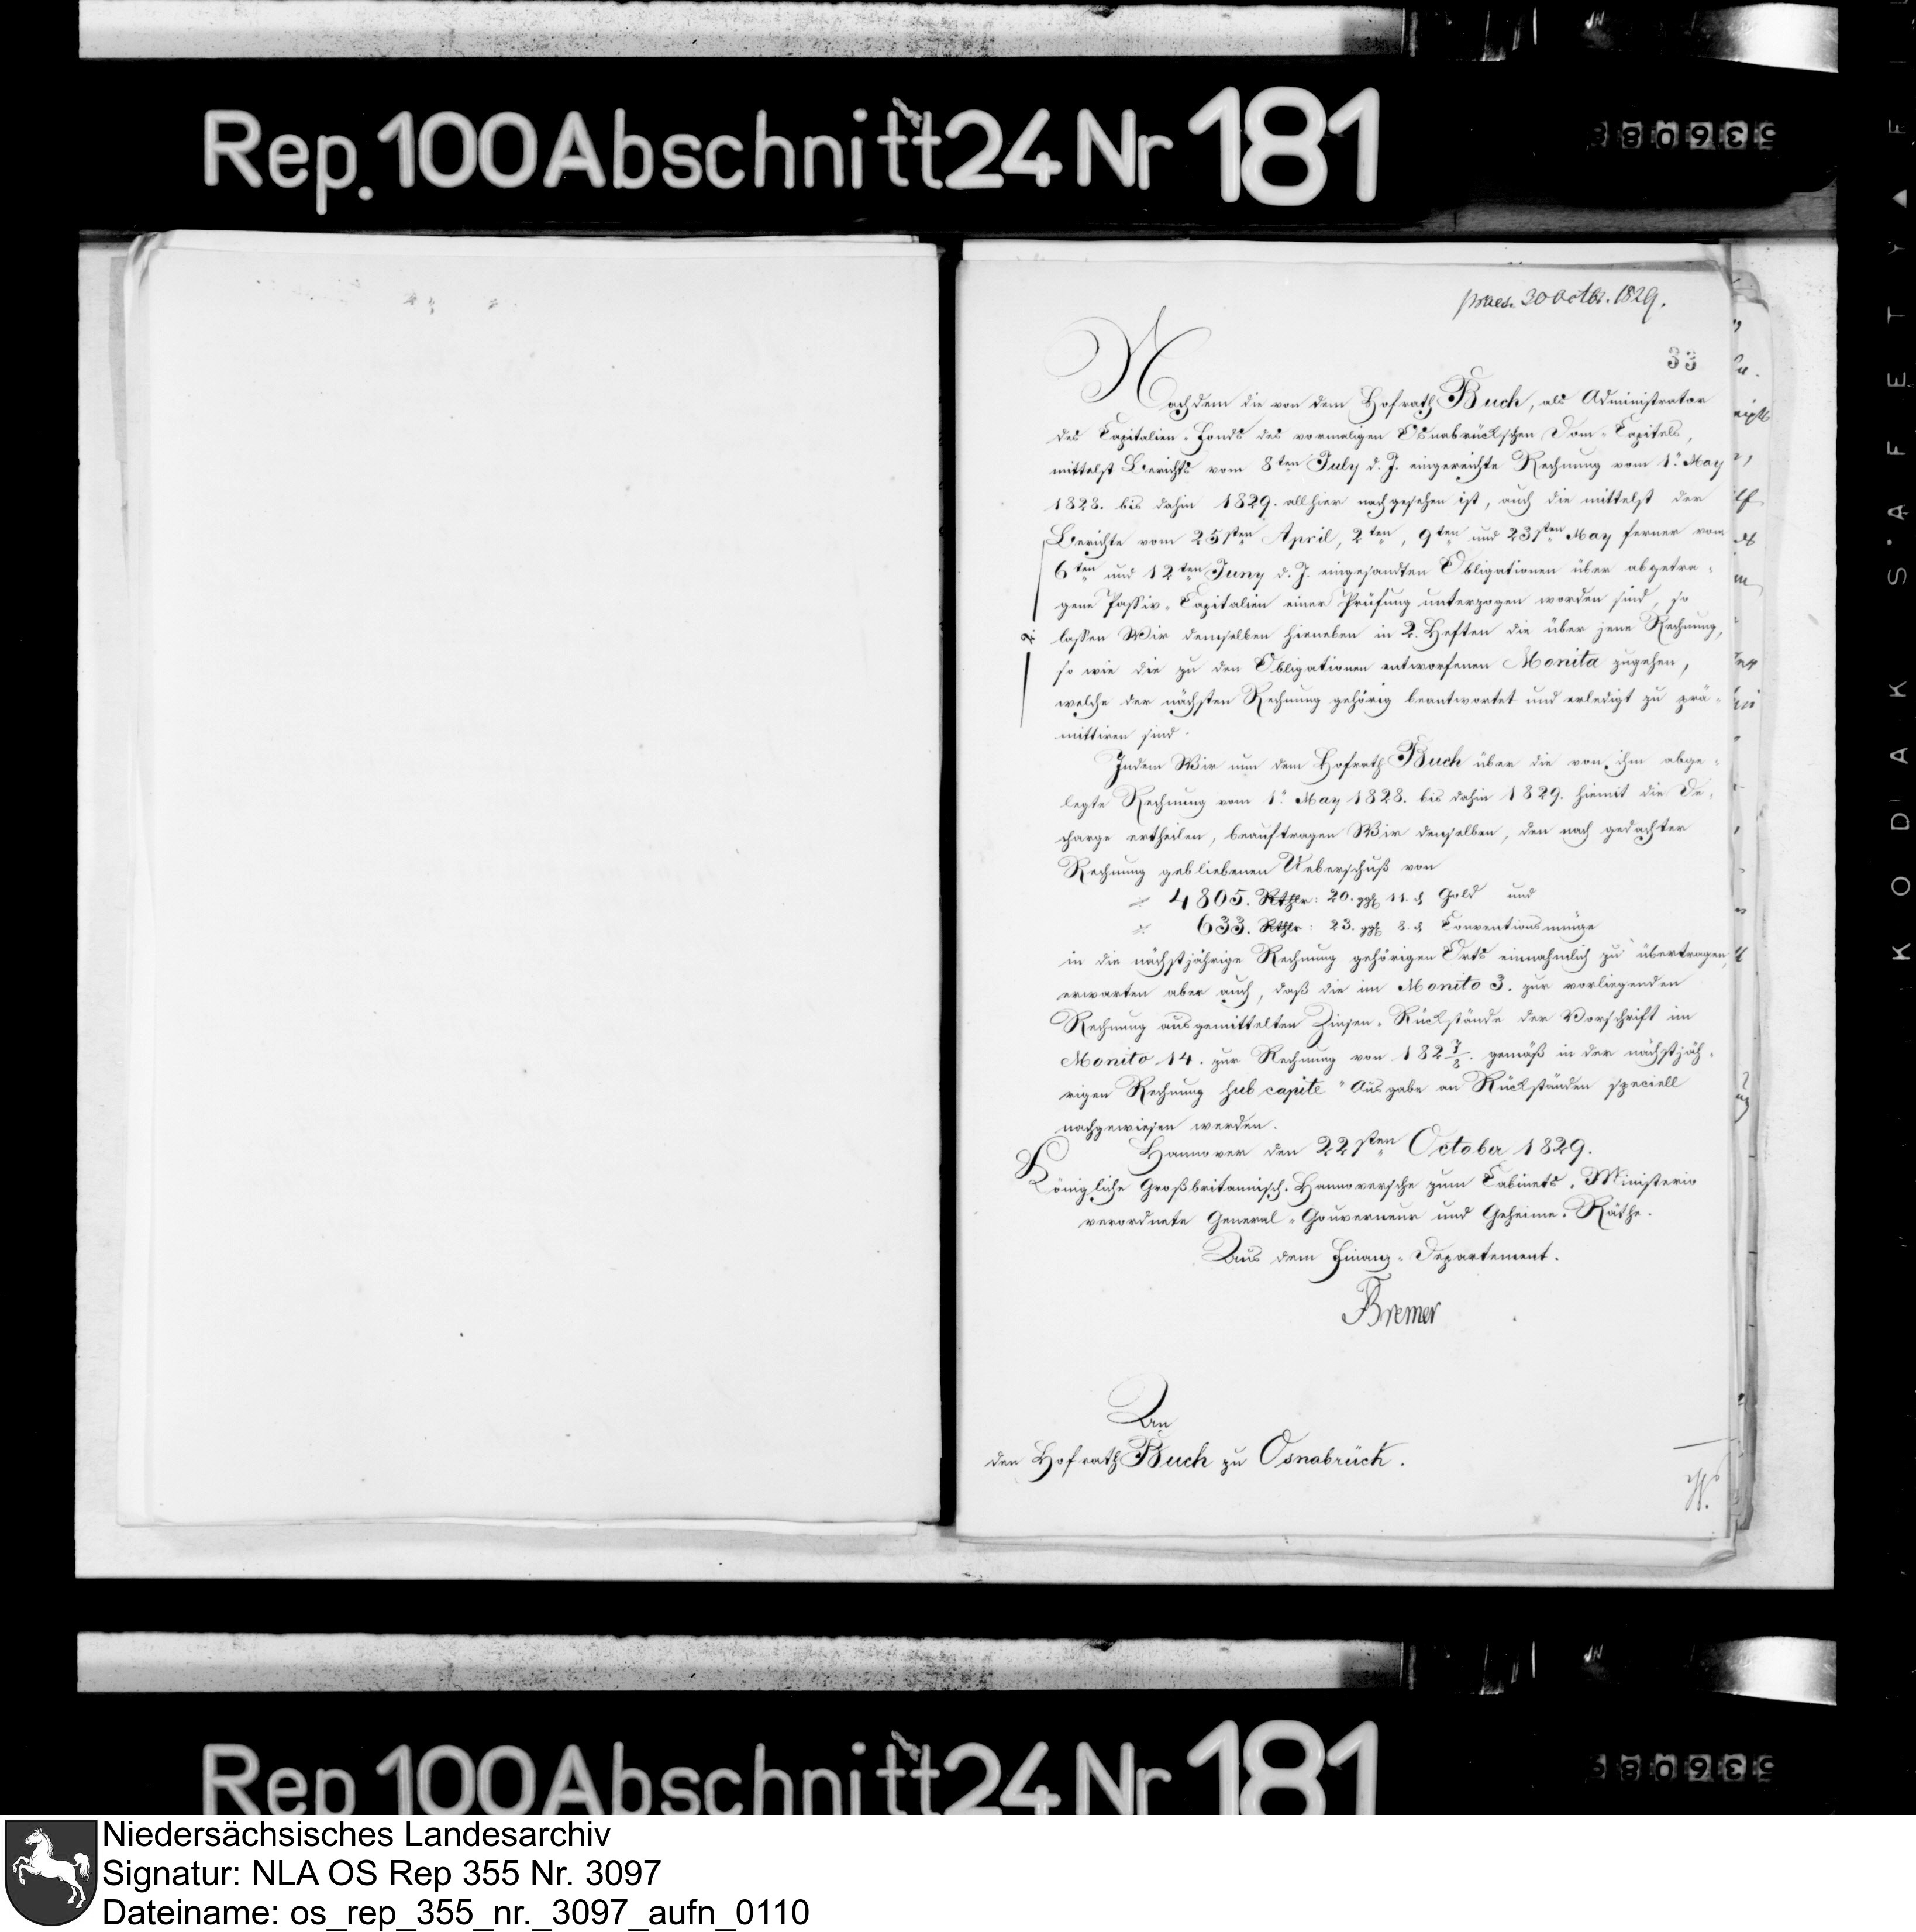 Rep. 100 Abschnitt 24 Nr 181
praes. 30 Octbr. 1829.
33
Nachdem die von dem Hofrath Buch, als Administrator
des Capitalien-Fonds des vormaligen Osnabrückschen Dom-Capitels,
mittelst Berichts vom 8ten July d. J. eingereichte Rechnung vom 1. May
1828. bis dahin 1829. allhier nachgesehen ist, auch die mittelst der
Berichte vom 25sten April, 2ten, 9ten und 23sten May ferner vom
6ten und 12ten Juny d. J. eingesandten Obligationen über abgetra-
gene Passiv-Capitalien einer Prüfung unterzogen worden sind, so
lassen Wir demselben hieneben in 2. Heften die über jene Rechnung,
so wie die zu den Obligationen entworfenen Monita zugehen,
welche der nächsten Rechnung gehörig beantwortet und erledigt zu prä-
mittiren sind.
Indem Wir nun dem Hofrath Buch über die von ihm abge-
legte Rechnung vom 1. May 1828. bis dahin 1829. hiemit die De-
charge ertheilen, beauftragen Wir denselben, den nach gedachter
Rechnung gebliebenen Ueberschuß von
4805. Rthlr: 20. ggr 11. ₰ Gold und
633. Rthlr: 23. ggr 8. ₰ Conventionsmünze
in die nächstjährige Rechnung gehörigen Orts einnahmlich zu übertragen,
erwarten aber auch, daß die im Monito 3. zur vorliegenden
Rechnung ausgemittelten Zinsen-Rückstände der Vorschrift im
Monito 14. zur Rechnung von 182 7/8. gemäß in der nächstjäh-
rigen Rechnung sub capite "Ausgabe an Rückständen speciell
nachgewiesen werden.
Hannover den 22sten October 1829.
Königliche Großbritannisch-Hannoversche zum Cabinets-Ministerio
verordnete General-Gouverneur und Geheime-Räthe.
Aus dem Finanz-Departement.
Bremer
An
den Hofrath Buch zu Osnabrück.
KODAK SAFETY
Rep 100 Abschnitt 24 Nr 181
Niedersächsisches Landesarchiv
Signatur: NLA OS Rep 355 Nr. 3097
Dateiname: os_rep_355_nr._3097_aufn_0110